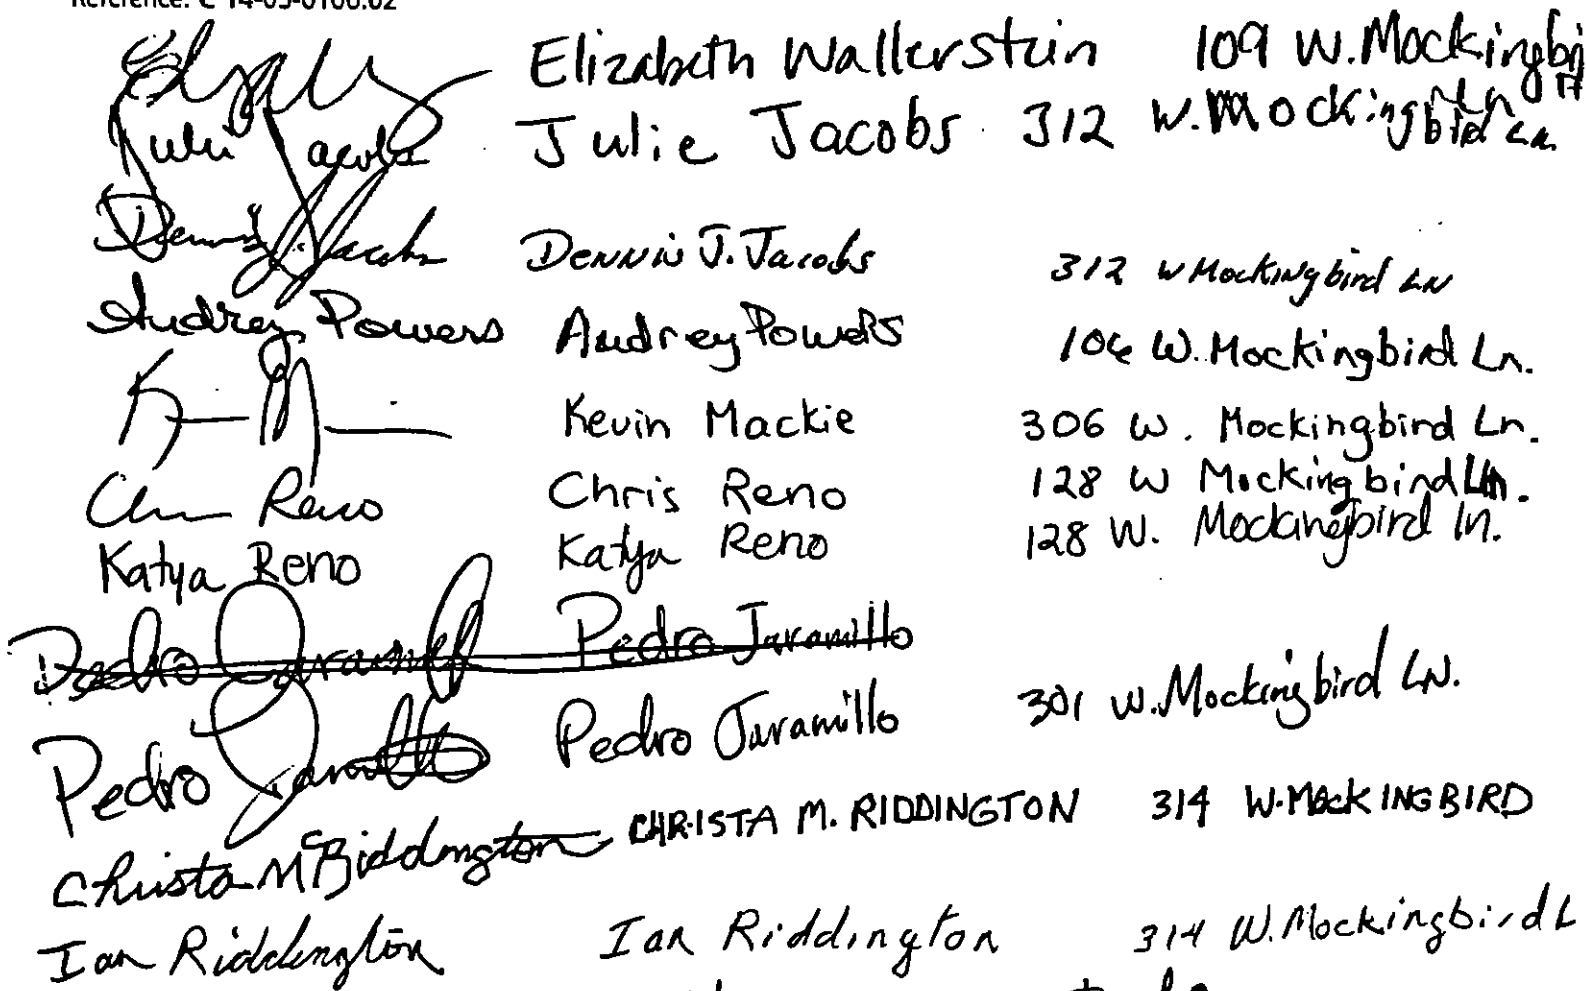 Reference: C 14-05-0106.02
Elizabeth Wallerstein 109 W. Mockingbird Ln
Julie Jacobs Julie Jacobs 312 W. Mockingbird Ln.
Dennis J. Jacobs Dennis J. Jacobs 312 W Mockingbird LN
Audrey Powers Audrey Powers 106 W. Mockingbird Ln.
Kevin Mackie 306 W. Mockingbird Ln.
Chris Reno Chris Reno 128 W Mockingbird Ln.
Katya Reno Katya Reno 128 W. Mockingbird ln.
Pedro Jaramillo Pedro Jaramillo
Pedro Jaramillo Pedro Jaramillo 301 W. Mockingbird LN.
Christa M Riddington CHRISTA M. RIDDINGTON 314 W. MOCKINGBIRD
Ian Riddington Ian Riddington 314 W. Mockingbird L